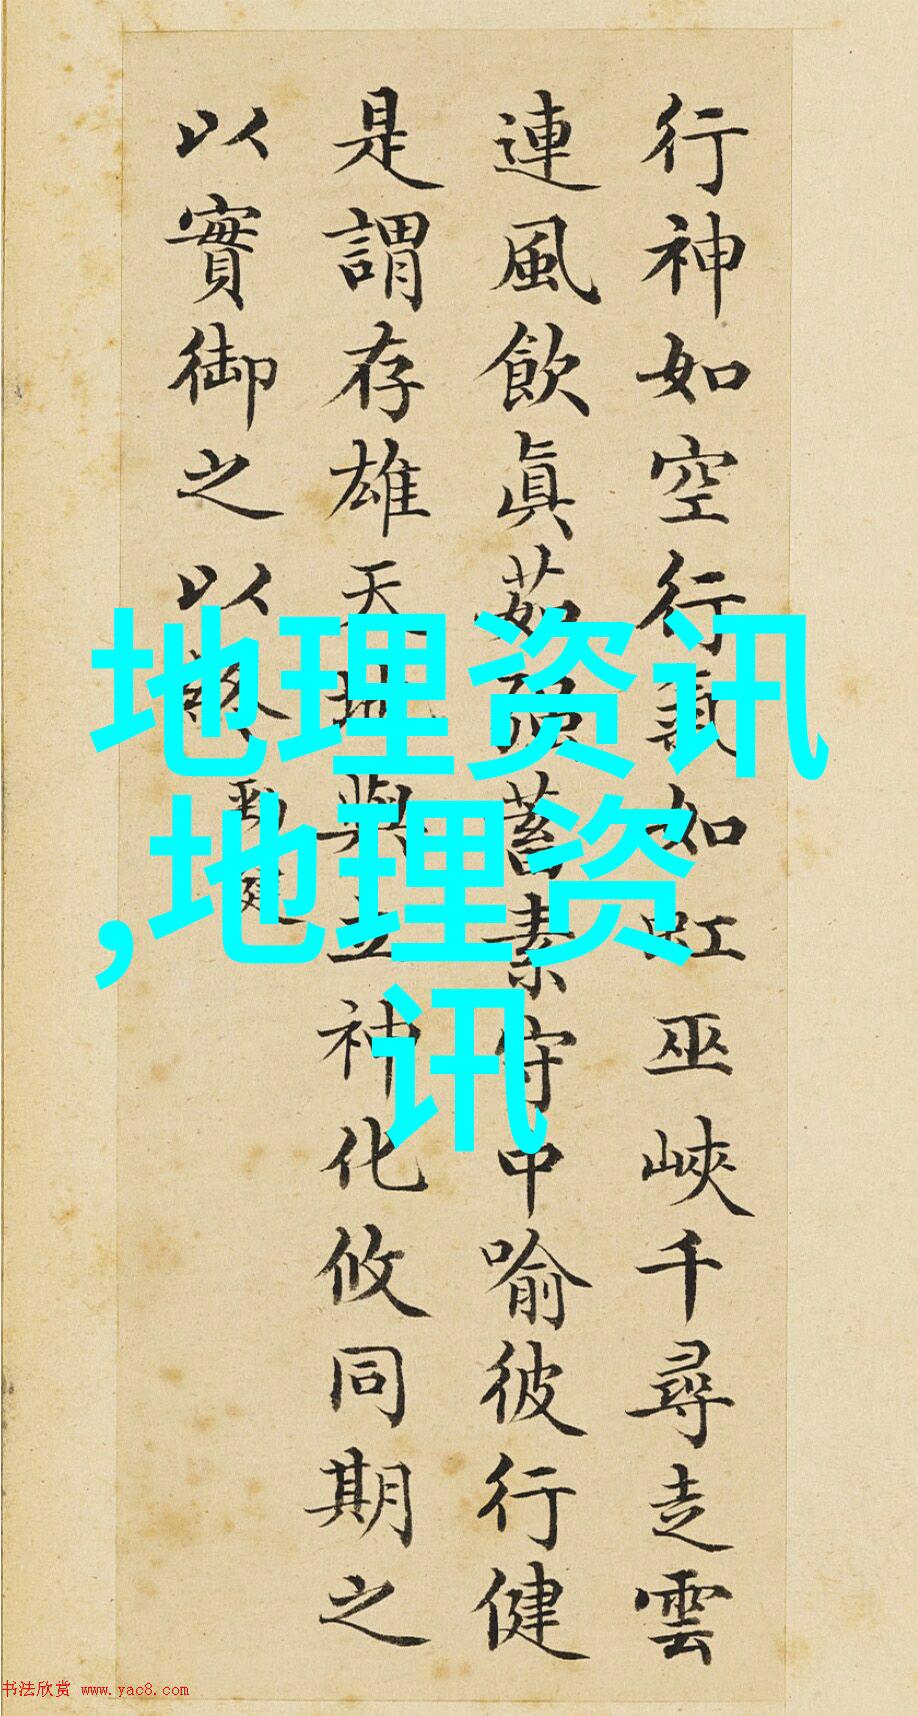 行神如空行氣如虹巫峽千尋走雲
連風飲眞茹强蓄素守中喻彼行健
是謂存雄天地與立神化攸同期之
以實御之以終
勁健
地理资讯
,地理资
讯
书法欣赏 www.yac8.com